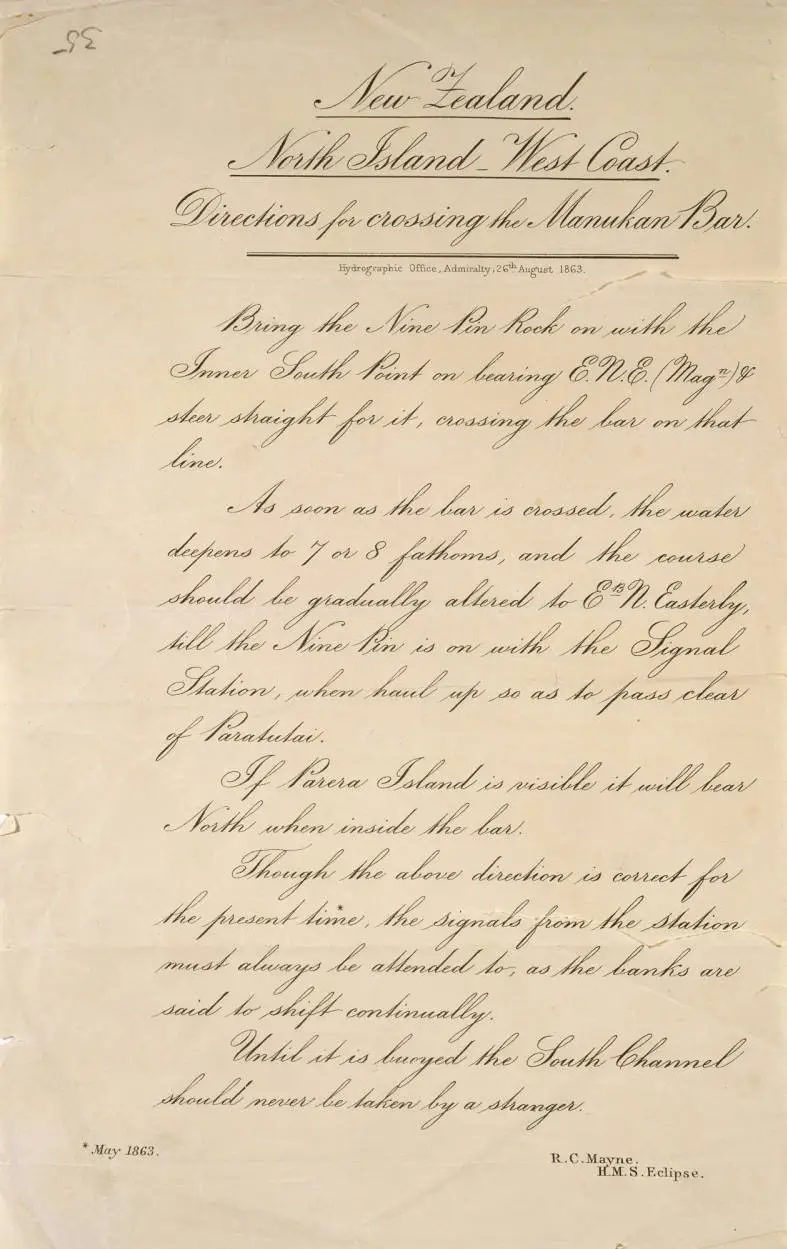 35
New Zealand.
North Island_West Coast.
Directions for crossing the Manukan Bar.
Hydrographic Office, Admiralty, 26th August 1863.
Bring the Nine Pin Rock on with the
Inner South Point on bearing E.N.E. (Magn) &
steer straight for it, crossing the bar on that
line.
As soon as the bar is crossed, the water
deepens to 7 or 8 fathoms, and the course
should be gradually altered to EBN. Easterly,
till the Nine Pin is on with the Signal
Station, when haul up so as to pass clear
of Paratutai.
If Parera Island is visible it will bear
North when inside the bar.
Though the above direction is correct for
the present time*, the signals from the station
must always be attended to, as the banks are
said to shift continually.
Until it is buoyed the South Channel
should never be taken by a stranger.
* May 1863.
R.C. Mayne.
H.M.S. Eclipse.